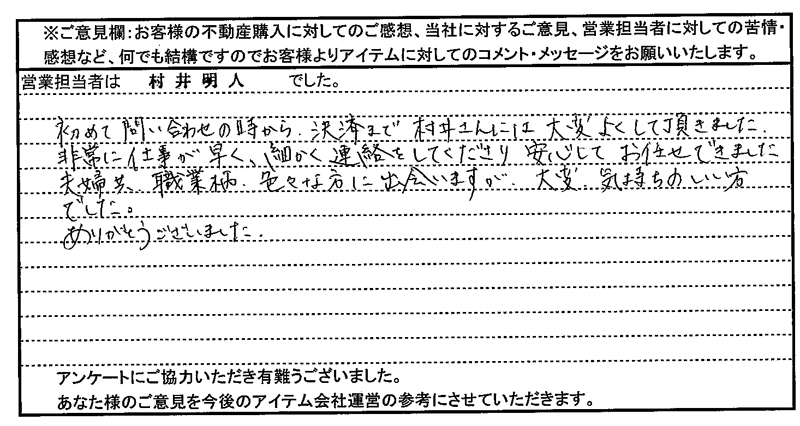 ※ご意見欄:お客様の不動産購入に対してのご感想、当社に対するご意見、営業担当者に対しての苦情・
感想など、何でも結構ですのでお客様よりアイテムに対してのコメント・メッセージをお願いいたします。
営業担当者は 村井明人 でした。
初めて問い合わせの時から、決済まで村井さんには大変よくして頂きました。
非常に仕事が早く、細かく連絡をしてくださり安心してお任せできました
夫婦共、職業柄、色々な方に出会いますが、大変、気持ちのいい方
でした。
ありがとうございました。
アンケートにご協力いただき有難うございました。
あなた様のご意見を今後のアイテム会社運営の参考にさせていただきます。